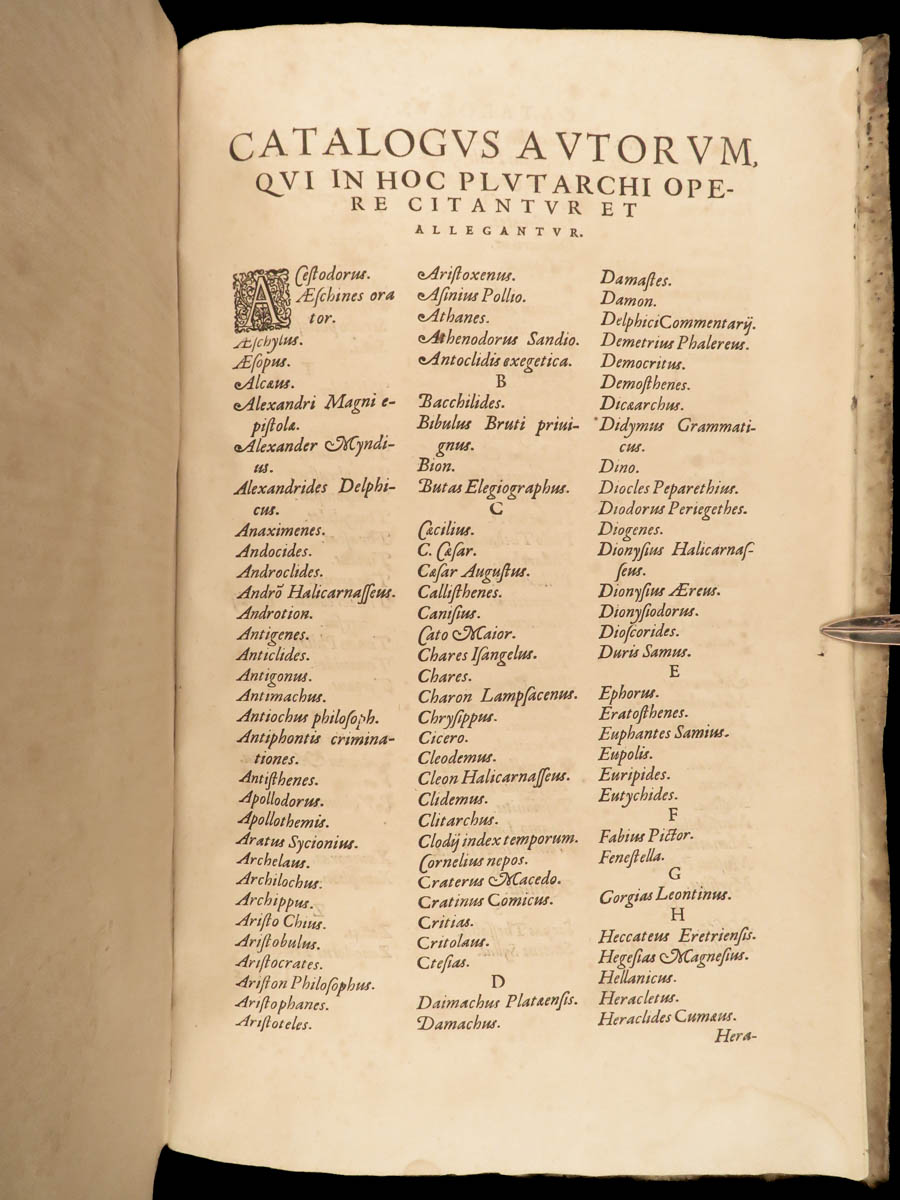 CATALOGVS AVTORVM,
QVI IN HOC PLVTARCHI OPE-
RE CITANTVR ET
ALLEGANTVR.
ACeſtodorus.
Æſchines ora
tor.
Æſchylus.
Æſopus.
Alcæus.
Alexandri Magni e-
piſtolæ.
Alexander Myndi-
us.
Alexandrides Delphi-
cus.
Anaximenes.
Andocides.
Androclides.
Andrõ Halicarnaſſeus.
Androtion.
Antigenes.
Anticlides.
Antigonus.
Antimachus.
Antiochus philoſoph.
Antiphontis crimina-
tiones.
Antiſthenes.
Apollodorus.
Apollothemis.
Aratus Sycionius.
Archelaus.
Archilochus.
Archippus.
Ariſto Chius.
Ariſtobulus.
Ariſtocrates.
Ariſton Philoſophus.
Ariſtophanes.
Ariſtoteles.
Ariſtoxenus.
Aſinius Pollio.
Athanes.
Athenodorus Sandio.
Antoclidis exegetica.
B
Bacchilides.
Bibulus Bruti priui-
gnus.
Bion.
Butas Elegiographus.
C
Cæcilius.
C. Cæſar.
Cæſar Auguſtus.
Calliſthenes.
Caniſius.
Cato Maior.
Chares Iſangelus.
Chares.
Charon Lampſacenus.
Chryſippus.
Cicero.
Cleodemus.
Cleon Halicarnaſſeus.
Clidemus.
Clitarchus.
Clodij index temporum.
Cornelius nepos.
Craterus Macedo.
Cratinus Comicus.
Critias.
Critolaus.
Cteſias.
D
Daimachus Platæenſis.
Damachus.
Damaſtes.
Damon.
Delphici Commentarij.
Demetrius Phalereus.
Democritus.
Demoſthenes.
Dicæarchus.
Didymus Grammati-
cus.
Dino.
Diocles Peparethius.
Diodorus Periegethes.
Diogenes.
Dionyſius Halicarnaſ-
ſeus.
Dionyſius Æreus.
Dionyſiodorus.
Dioſcorides.
Duris Samus.
E
Ephorus.
Eratoſthenes.
Euphantes Samius.
Eupolis.
Euripides.
Eutychides.
F
Fabius Pictor.
Feneſtella.
G
Gorgias Leontinus.
H
Heccateus Eretrienſis.
Hegeſias Magneſius.
Hellanicus.
Heracletus.
Heraclides Cumæus.
Hera-